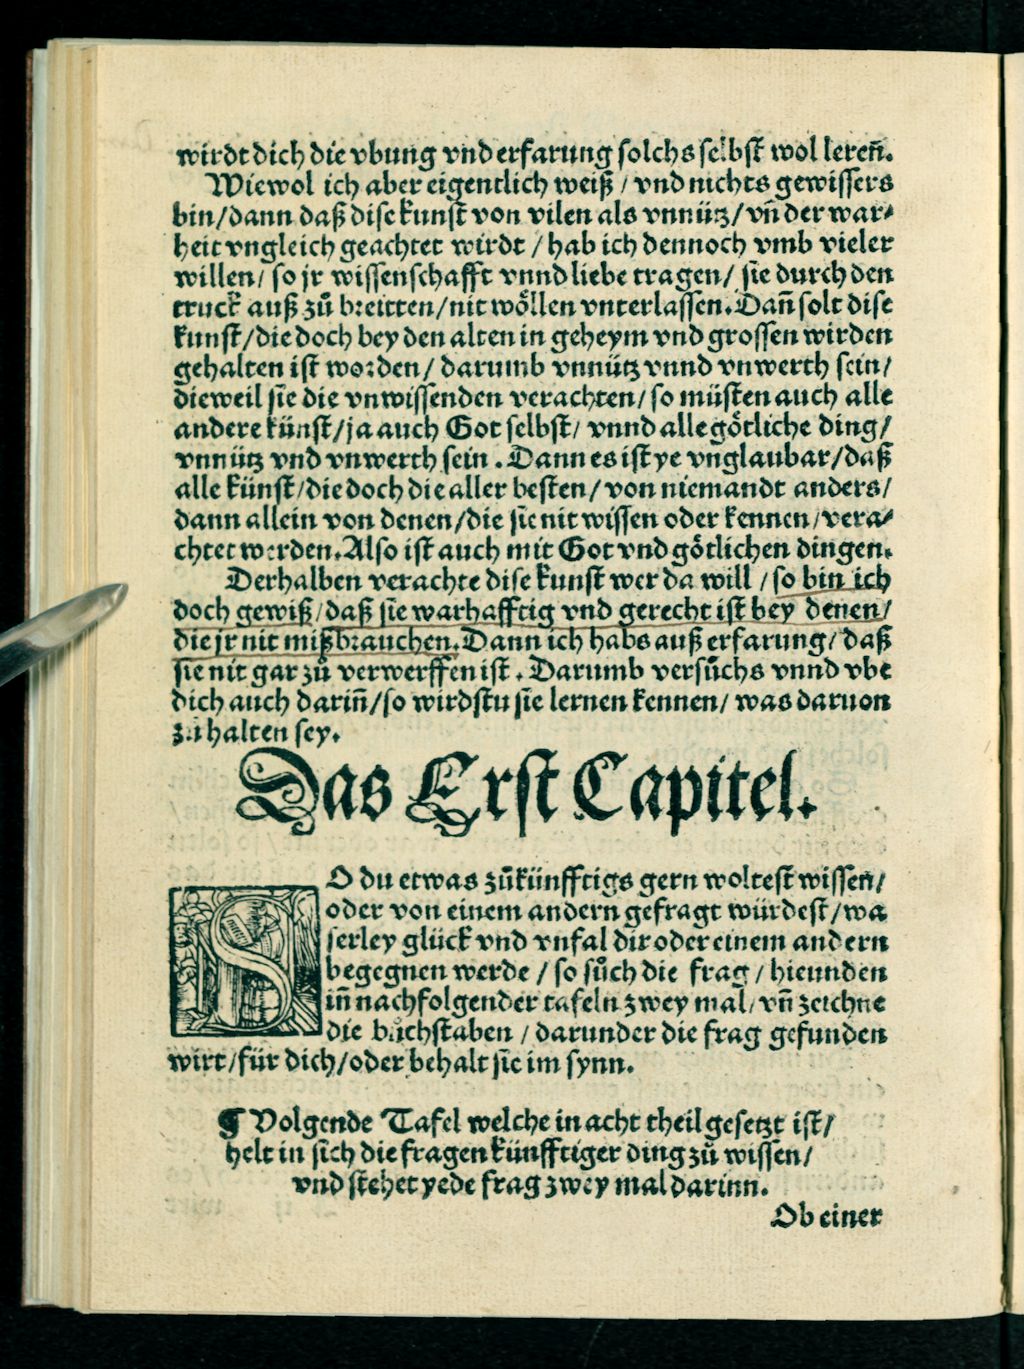 wirdt dich die vbung vnd erfarung solchs selbst wol lereñ.
Wiewol ich aber eigentlich weiß / vnd nichts gewissers
bin/dann daß dise kunst von vilen als vnnütz/vñ der war⸗
heit vngleich geachtet wirdt / hab ich dennoch vmb vieler
willen/ so jr wissenschafft vnnd liebe tragen/ sie durch den
truck auß zů breitten/nit wöllen vnterlassen. Dañ solt dise
kunst/die doch bey den alten in geheym vnd grossen wirden
gehalten ist worden/ darumb vnnütz vnnd vnwerth sein/
dieweil sie die vnwissenden verachten/ so müsten auch alle
andere künst/ja auch Got selbst/ vnnd alle götliche ding/
vnnütz vnd vnwerth sein . Dann es ist ye vnglaubar/daß
alle künst/die doch die aller besten/ von niemandt anders/
dann allein von denen/die sie nit wissen oder kennen/vera⸗
chtet werden. Also ist auch mit Got vnd götlichen dingen.
Derhalben verachte dise kunst wer da will /so bin ich
doch gewiß/daß sie warhafftig vnd gerecht ist bey denen/
die jr nit mißbrauchen. Dann ich habs auß erfarung/ daß
sie nit gar zů verwerffen ist . Darumb versůchs vnnd vbe
dich auch dariñ/so wirdstu sie lernen kennen/ was daruon
zu halten sey.
Das Erst Capitel.
SO du etwas zůkünfftigs gern woltest wisseñ/
oder von einem andern gefragt würdest/wa
serley glück vnd vnfal dir oder einem andern
begegnen werde / so sůch die frag / hieunden
iñ nachfolgender tafeln zwey mal/ vñ zeichne
die bůchstaben / darunder die frag gefunden
wirt/für dich/oder behalt sie im synn.
¶ Volgende Tafel welche in acht theil gesetzt ist/
helt in sich die fragen künfftiger ding zů wissen/
vnd stehet yede frag zwey mal darinn.
Ob einer